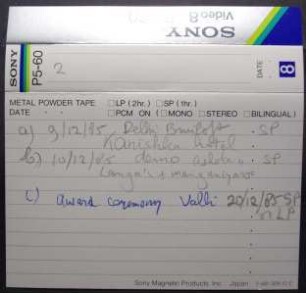 SONY
Video 8
SONY
P5-60
2
DATE
8
METAL POWDER TAPE □LP (2hr.) □SP (1hr.)
DATE □PCM ON (□MONO □STEREO □BILINGUAL)
a) 9/12/85, Delhi SP
Kanishka hotel
b) 10/12/85 demo SP
Langa's & manganiyars
c) award ceremony Valli 20/12/85 SP
LP
Sony Magnetic Products Inc. Japan